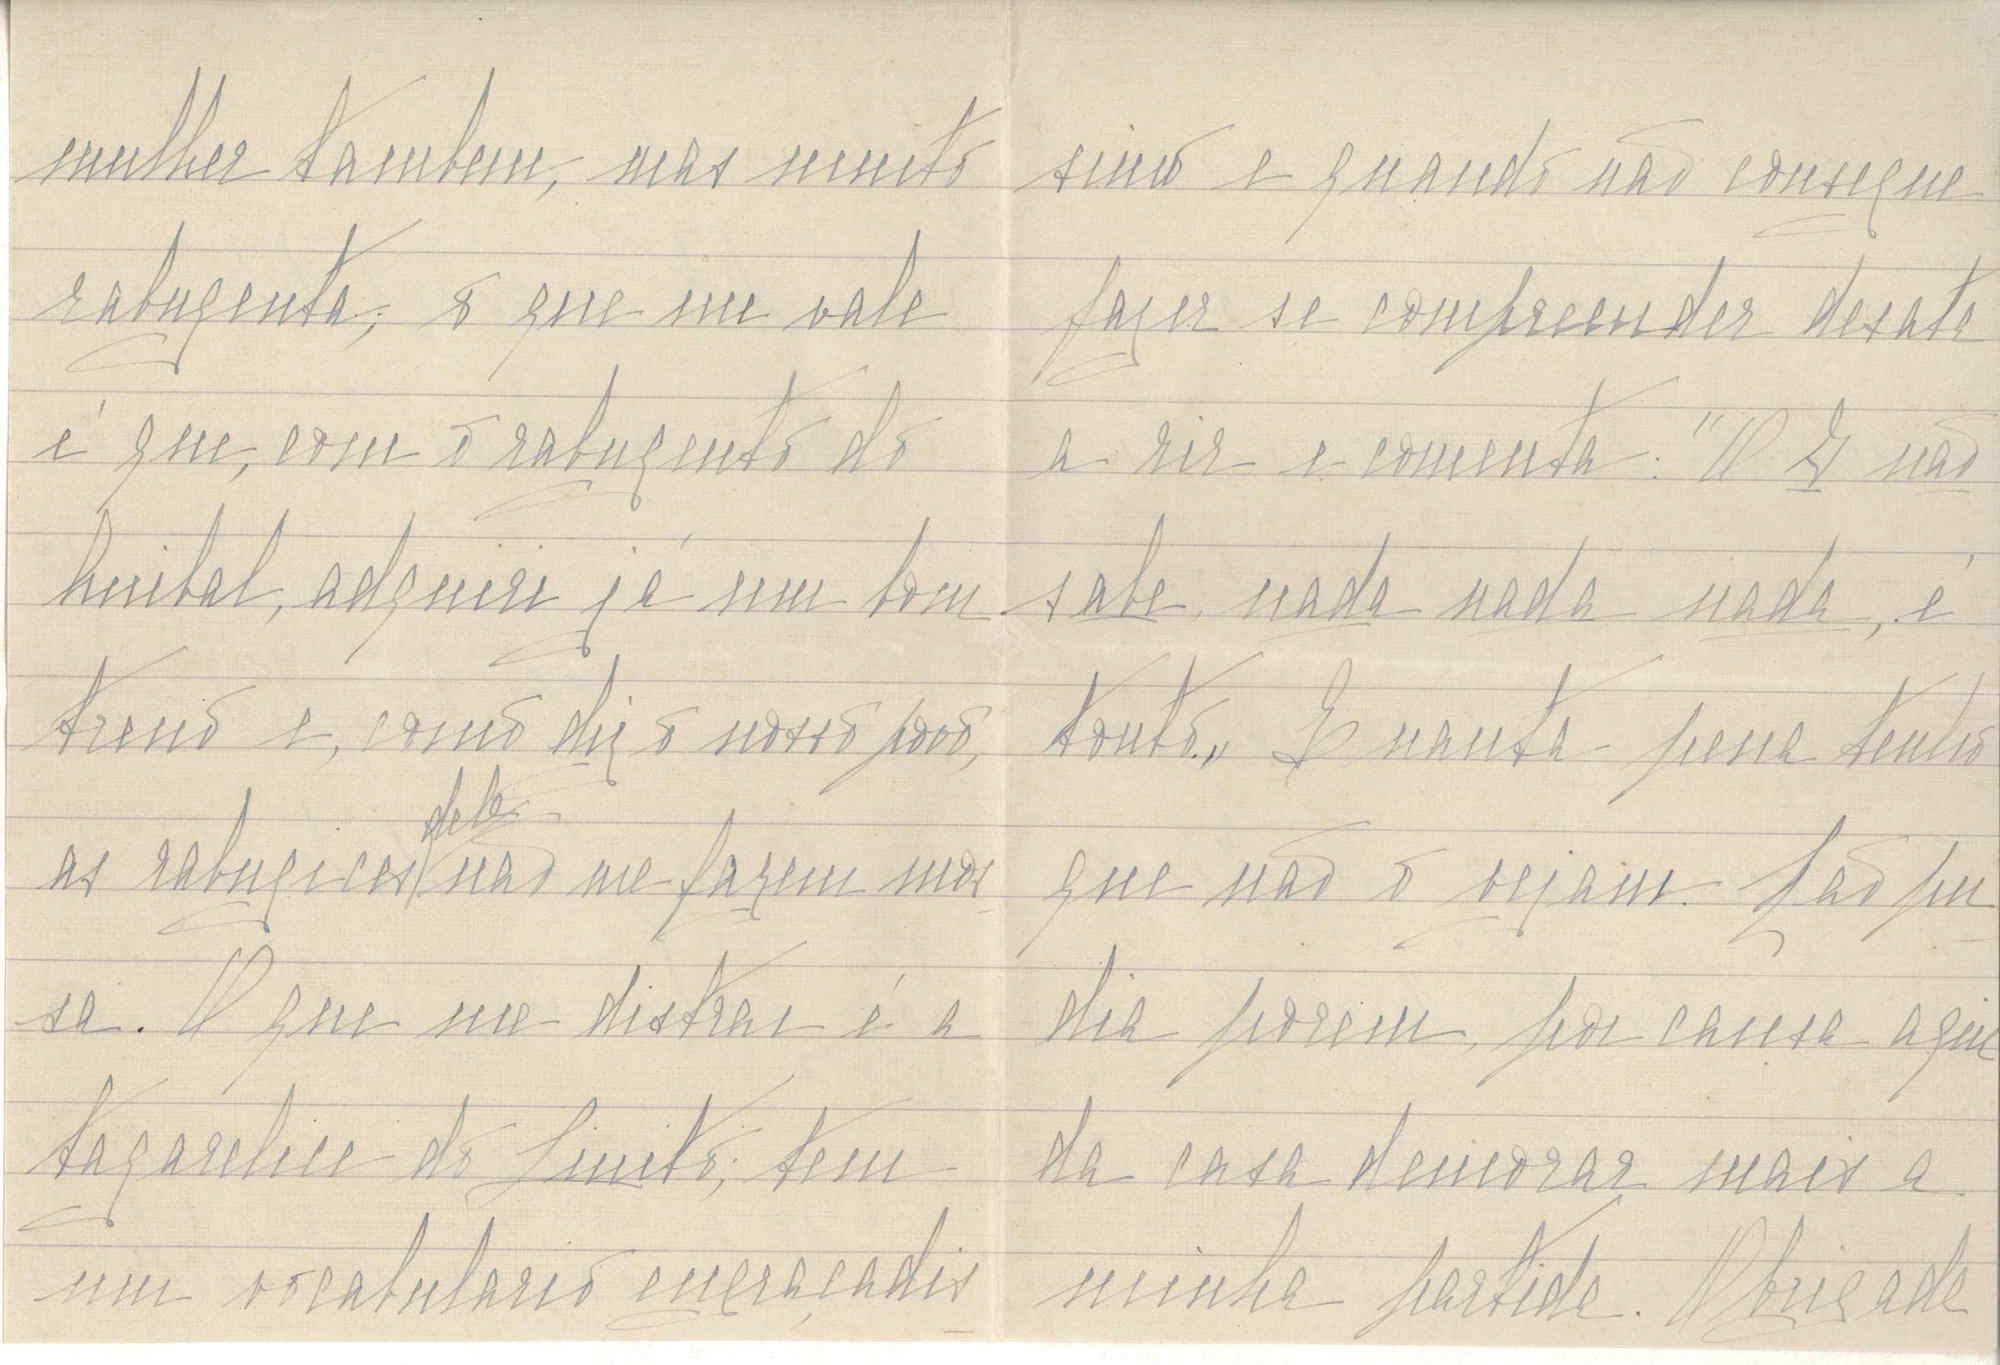 mulher tambem, mas muito
rabugenta; o que me vale
é que, com o rabugento do
Anibal, adquiri já um bom
treno e, como diz o nosso povo,
as rabugices dele não me fazem mos
sa. O que me distrae é a
tagarelice do Linito; tem
um vocabulario engraçadis
simo e quando não consegue
fazer se compreender desata
a rir e comenta: "O Z não
sabe, nada nada nada, é
tonto". E nanta pena tenho
que não o vejam. Não pu
dia porem, por causa aqui
da casa demorar mais a
minha partida. Obrigada